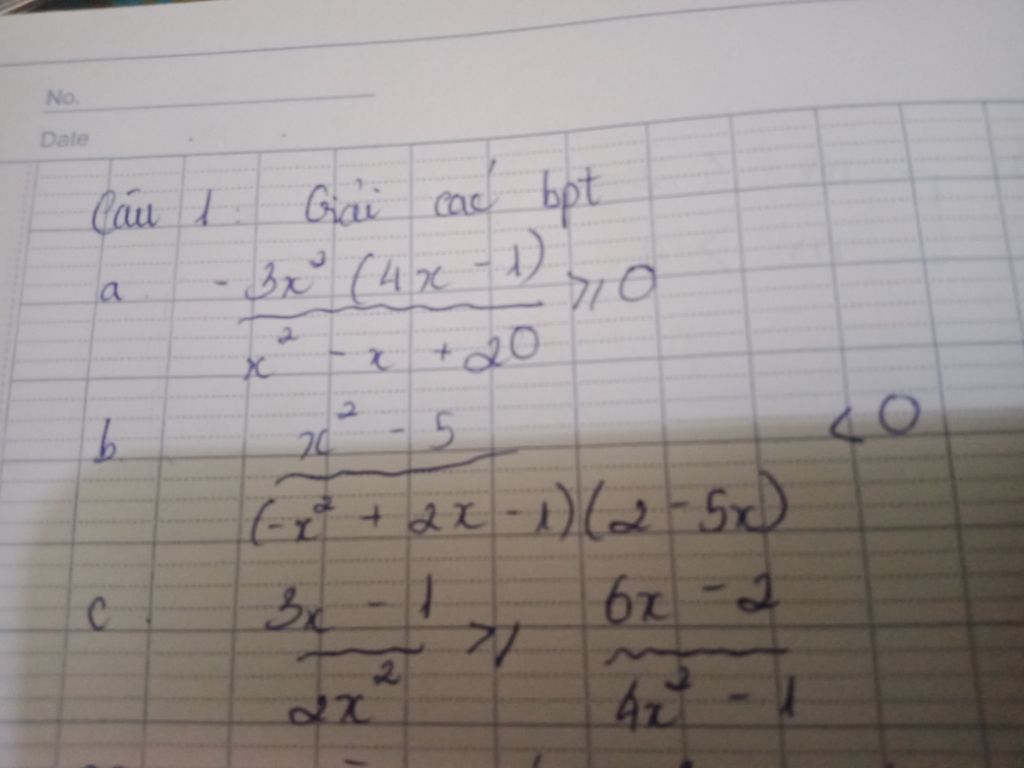 No.
Date
Câu 1: Giải các bpt
a. -3x² (4x - 1) / x² - x + 20 ⩾ 0
b x² - 5 / (-x² + 2x - 1)(2 - 5x) < 0
c. 3x - 1 / 2x² ⩾ 6x - 2 / 4x² - 1